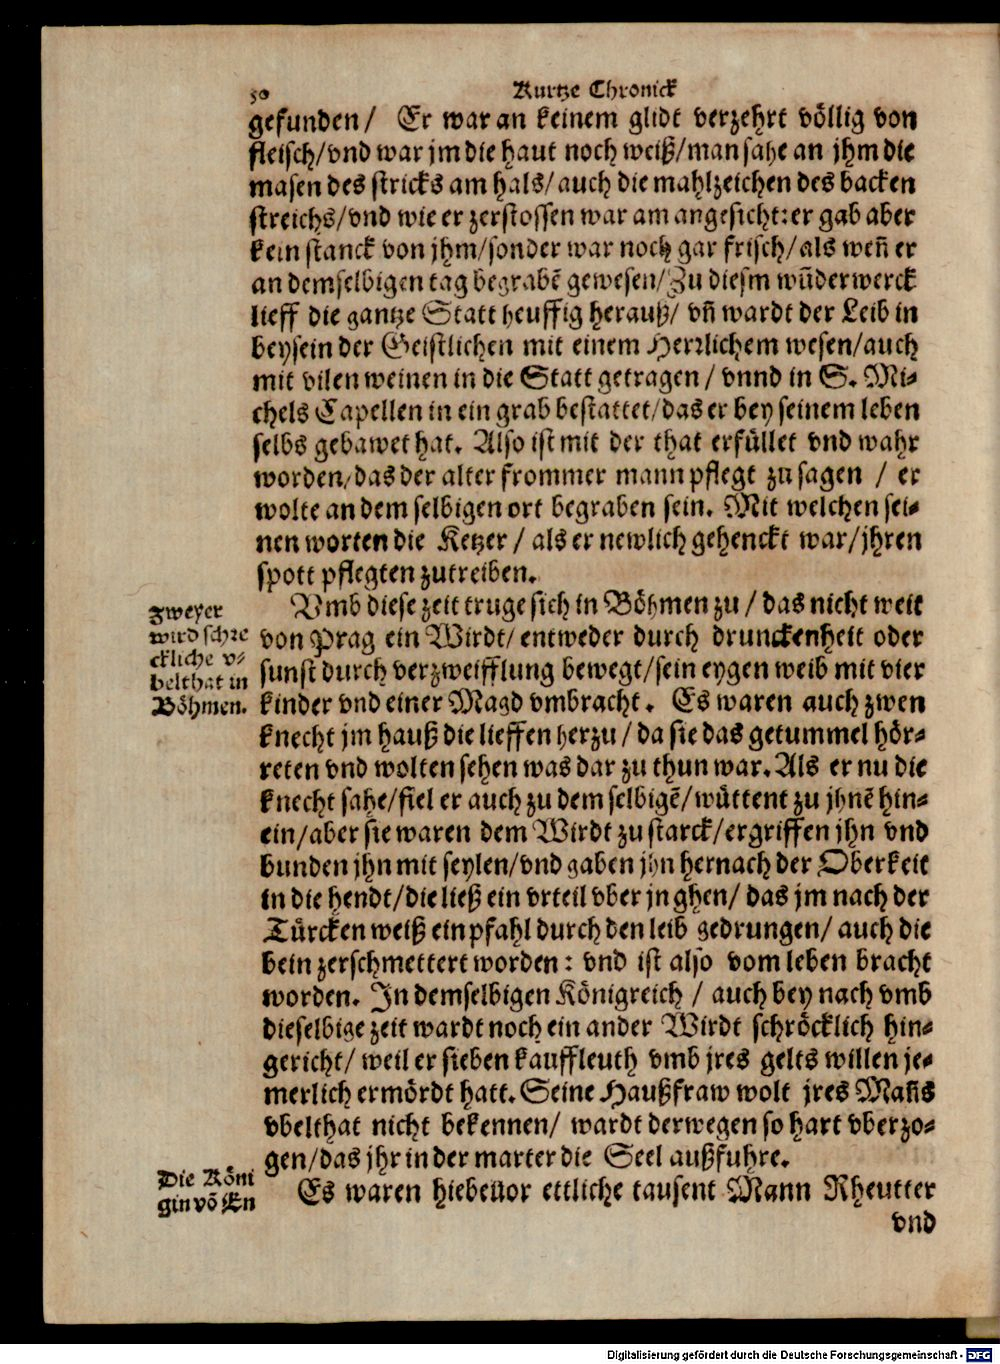 50
Kurtze Chronick
gefunden/ Er war an keinem glidt verzehrt völlig von
fleisch/vnd war jm die haut noch weiß/man sahe an jhm die
masen des stricks am hals/auch die mahlzeichen des backen
streichs/vnd wie er zerstossen war am angesicht: er gab aber
kein stanck von jhm/sonder war noch gar frisch/als weñ er
an demselbigen tag begrabẽ gewesen/Zu diesm wũderwerck
lieff die gantze Statt heuffig herauß/ vñ wardt der Leib in
beysein der Geistlichen mit einem Herrlichem wesen/auch
mit vilen weinen in die Statt getragen/ vnnd in S. Mi-
chels Capellen in ein grab bestattet/das er bey seinem leben
selbs gebawet hat. Also ist mit der that erfüllet vnd wahr
worden/das der alter frommer mann pflegt zu sagen / er
wolte an dem selbigen ort begraben sein. Mit welchen sei-
nen worten die Ketzer/ als er newlich gehenckt war/jhren
spott pflegten zutreiben.
Vmb diese zeit truge sich in Böhmen zu/ das nicht weit
von Prag ein Wirdt/ entweder durch drunckenheit oder
sunst durch verzweifflung bewegt/sein eygen weib mit vier
kinder vnd einer Magd vmbracht. Es waren auch zwen
knecht jm hauß die lieffen herzu/ da sie das getummel hör-
reten vnd wolten sehen was dar zu thun war. Als er nu die
knecht sahe/fiel er auch zu dem selbigẽ/wüttent zu jhnẽ hin-
ein/aber sie waren dem Wirdt zu starck/ergriffen jhn vnd
bunden jhn mit seylen/vnd gaben jhn hernach der Oberkeit
in die hendt/die ließ ein vrteil vber jn ghen/ das jm nach der
Türcken weiß ein pfahl durch den leib gedrungen/ auch die
bein zerschmettert worden: vnd ist also vom leben bracht
worden. In demselbigen Königreich / auch bey nach vmb
dieselbige zeit wardt noch ein ander Wirdt schröcklich hin-
gericht/ weil er sieben kauffleuth vmb jres gelts willen je-
merlich ermördt hatt. Seine Haußfraw wolt jres Mañs
vbelthat nicht bekennen/ wardt derwegen so hart vberzo-
gen/das jhr in der marter die Seel außfuhre.
Es waren hiebeuor ettliche tausent Mann Rheutter
vnd
Zweyer
wird schre
ckliche v-
belthat in
Böhmen.
Die Köni
gin võ
Digitalisierung gefördert durch die Deutsche Forschungsgemeinschaft - DFG